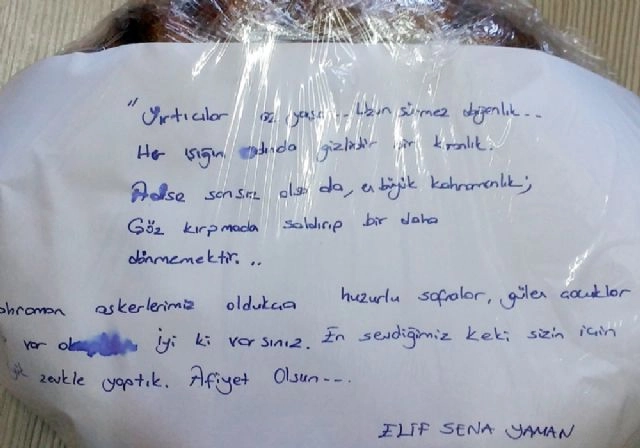 "Yırtıcılar az yaşar.. Uzun sürmez doğanlık..
Her ışığın ardında gizlidir bir karanlık.
Adsız sansız olsa da, en büyük kahramanlık;
Göz kırpmada saldırıp bir daha
dönmemektir...
ahraman askerlerimiz oldukça huzurlu sofralar, gülen çocuklar
var İyi ki varsınız. En sevdiğimiz keki sizin için
zevkle yaptık. Afiyet Olsun---.
ELİF SENA YAMAN